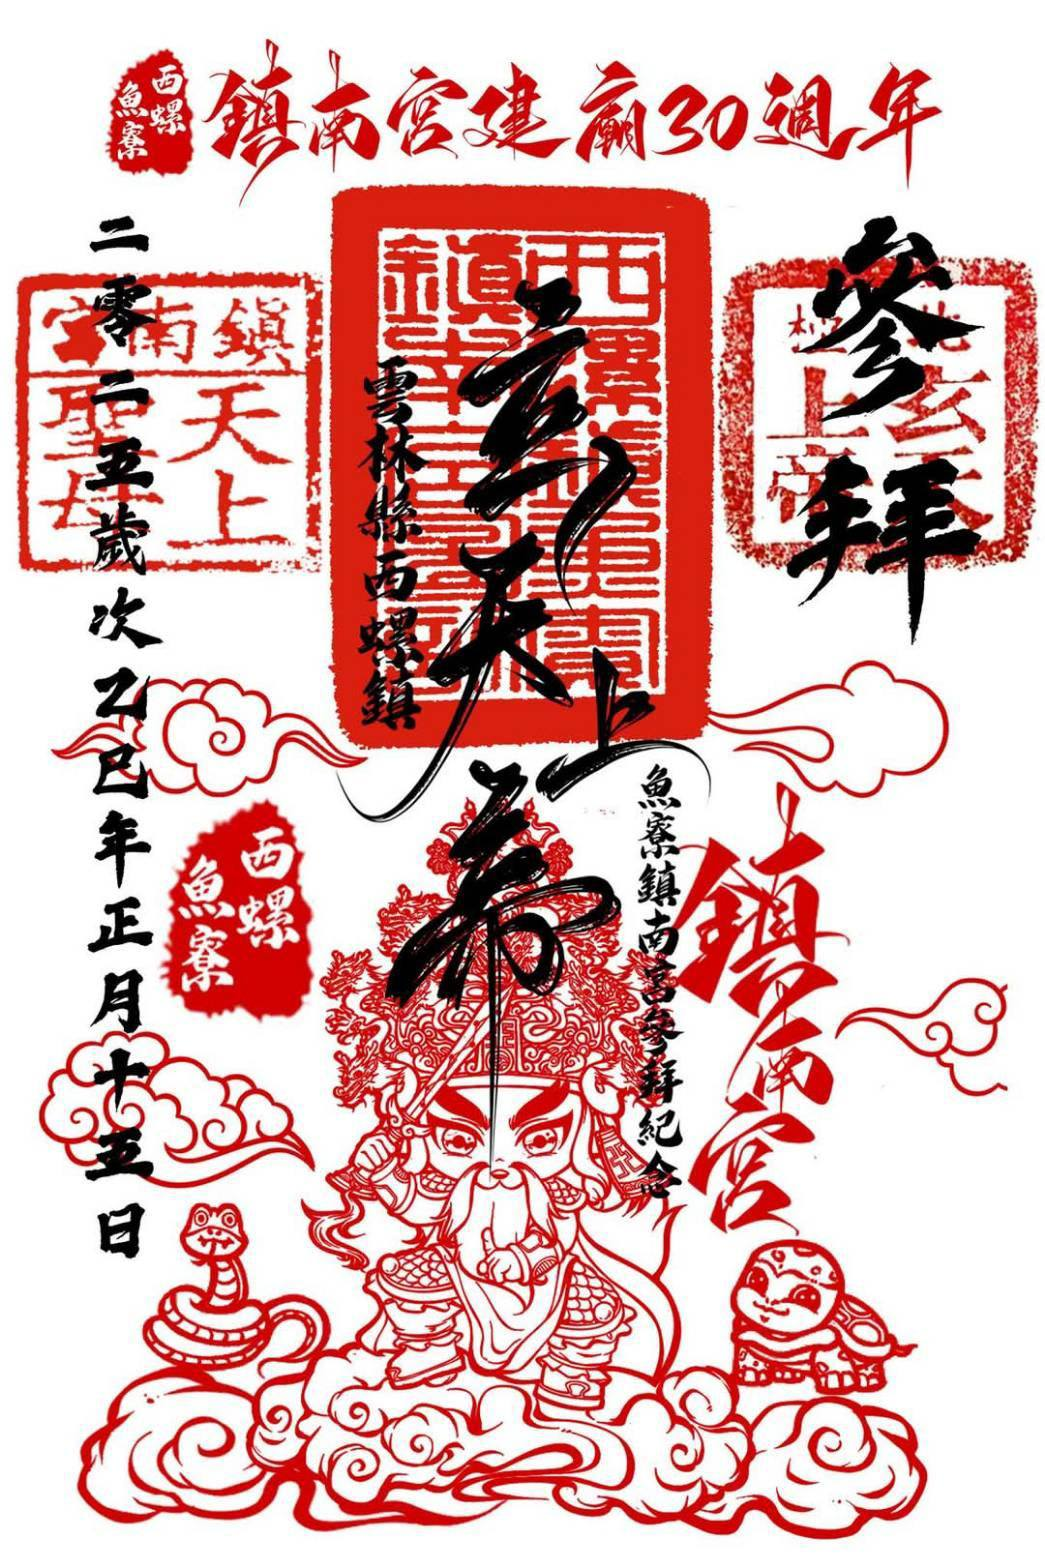 西螺
魚寮
鎮南宮建廟30週年
參拜
北極
玄天
上帝
玄天上帝
雲林縣西螺鎮
魚寮鎮南宮參拜紀念
鎮南宮
天上
聖母
二零二五歲次乙巳年正月十五日
西螺
魚寮
鎮南宮